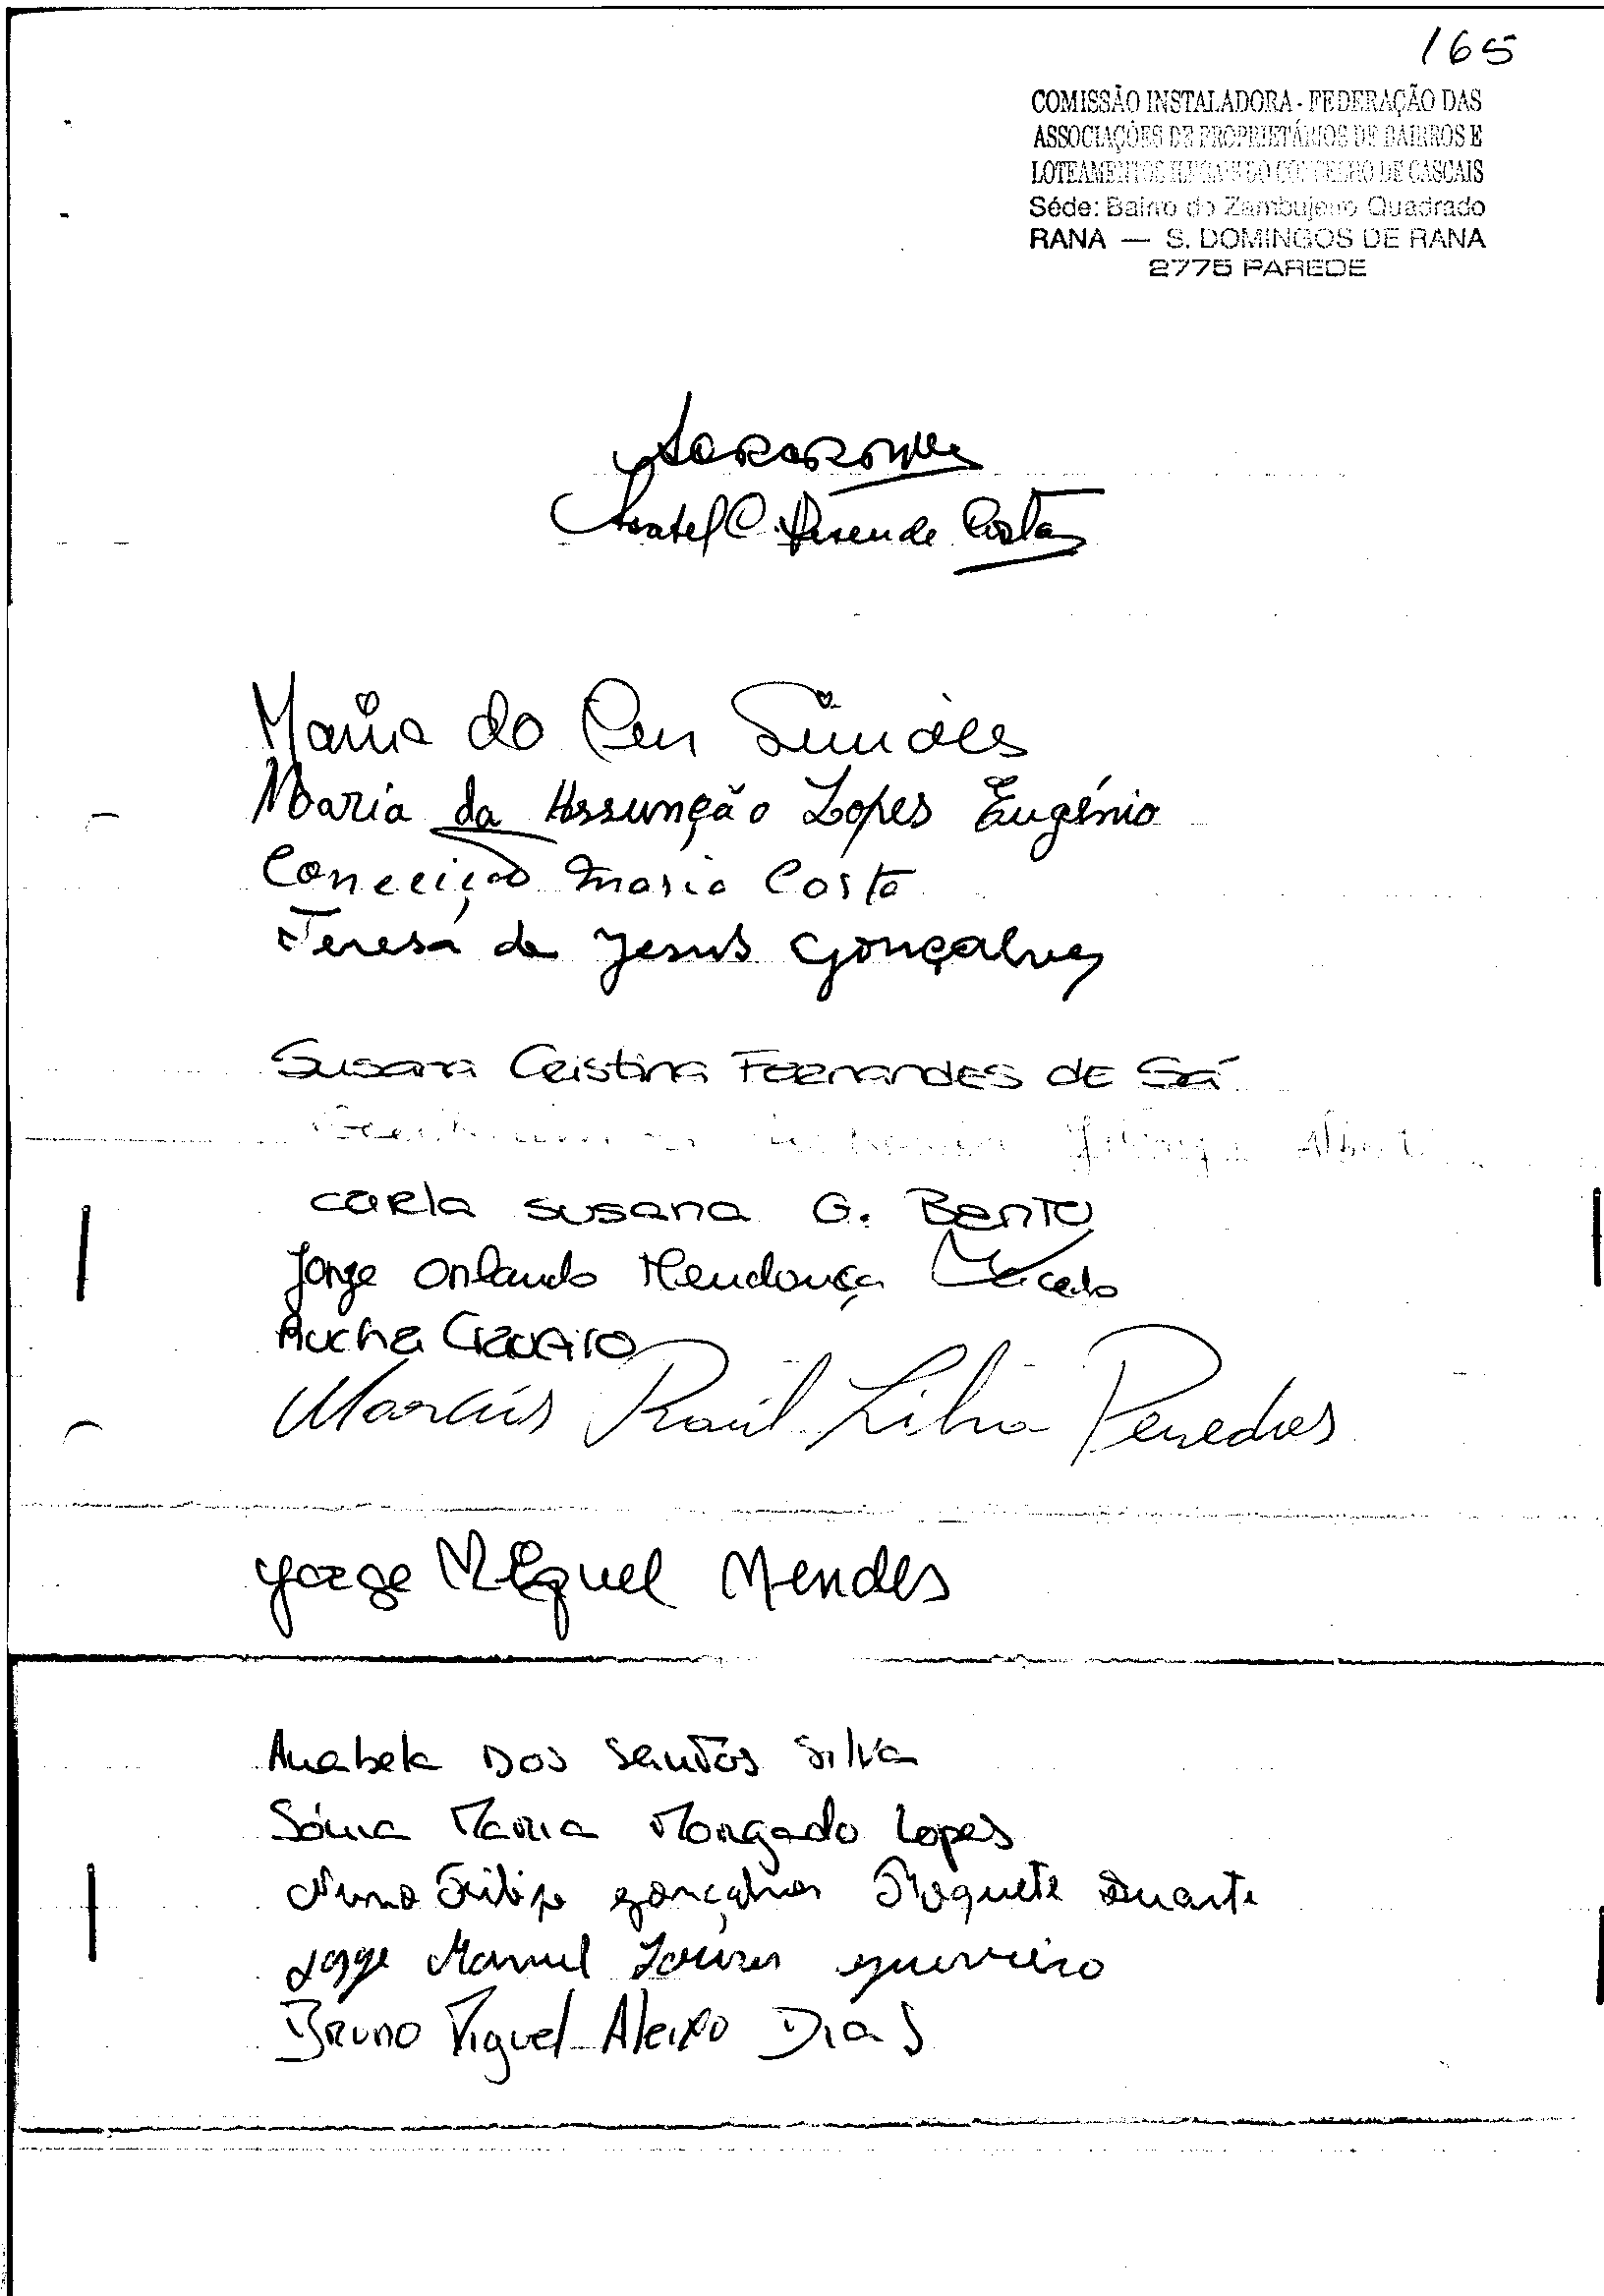 165
COMISSÃO INSTALADORA - FEDERAÇÃO DAS
ASSOCIAÇÕES DE PROPRIETÁRIOS DE BAIRROS E
LOTEAMENTOS ILEGAIS DO CONCELHO DE CASCAIS
Séde: Bairro do Zambujeiro Quadrado
RANA — S. DOMINGOS DE RANA
2775 PAREDE
Isabel C. Resende Costa
Maria do Céu Simões
Maria da Assunção Lopes Eugénio
Conceição Maria Costa
Teresa de Jesus Gonçalves
Susana Cristina Fernandes de Sá
Carla Susana G. Bento
Jorge Orlando Mendonça Macedo
Craveiro
Marcus Raúl Penedros
Jorge Miguel Mendes
Anabela Dos Santos Silva
Sónia Maria Morgado Lopes
Nuno Filipe Gonçalves Roquete Duarte
Jorge Manuel guerreiro
Bruno Miguel Aleixo Dias